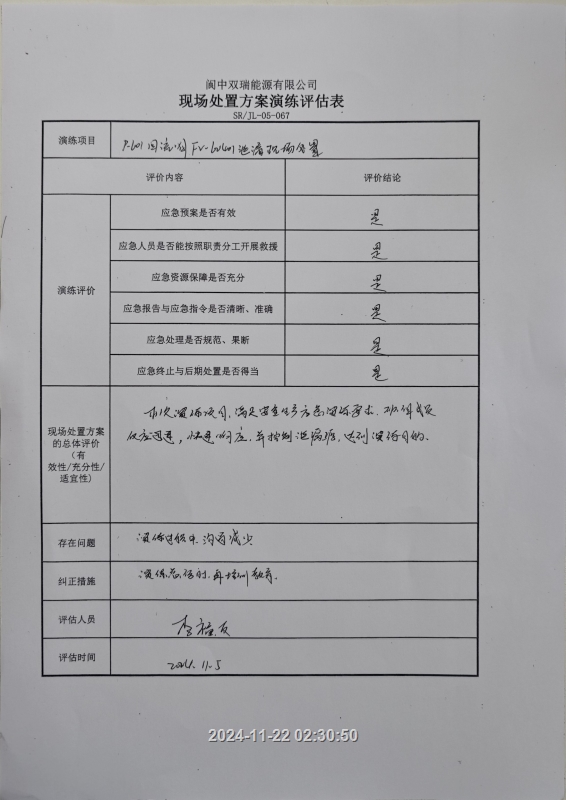 阆中双瑞能源有限公司
现场处置方案演练评估表
SR/JL-05-067
演练项目
P-601回流阀FV-60601泄漏现场处置
评价内容
评价结论
演练评价
应急预案是否有效
是
应急人员是否能按照职责分工开展救援
是
应急资源保障是否充分
是
应急报告与应急指令是否清晰、准确
是
应急处理是否规范、果断
是
应急终止与后期处置是否得当
是
现场处置方案
的总体评价
(有
效性/充分性/
适宜性)
本次演练项目,满足安全生产方面演练要求,班组成员
反应迅速,快速响应,并控制泄漏源,达到演练目的。
存在问题
演练过程中,沟通减少
纠正措施
演练总结时,再培训教育。
评估人员
评估时间
2024.11.5
2024-11-22 02:30:50